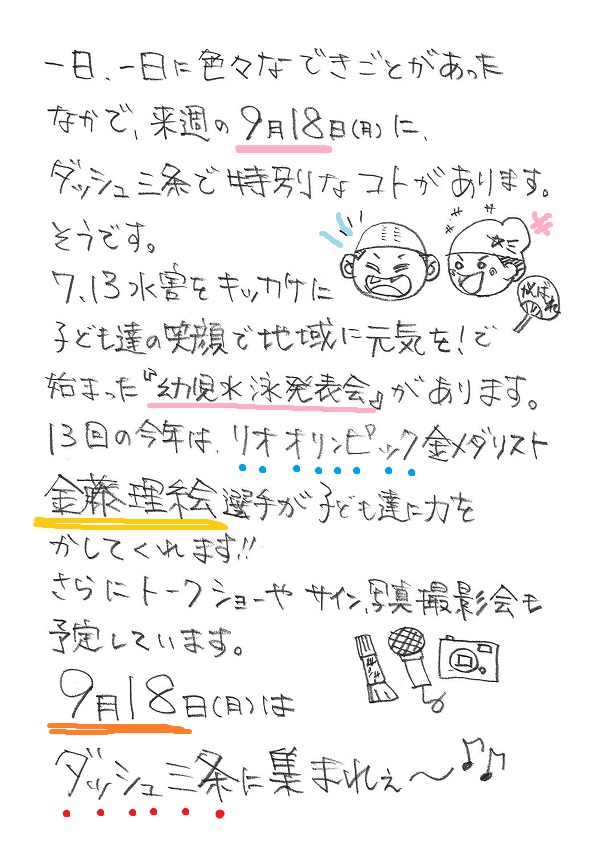 一日、一日に色々なできごとがあった
なかで、来週の9月18日(月)に、
ダッシュ三条で特別なコトがあります。
そうです。
7.13水害をキッカケに
がんばれ
子ども達の笑顔で地域に元気を!で
始まった『幼児水泳発表会』があります。
13回の今年は、リオオリンピック金メダリスト
金藤理絵選手が子ども達に力を
かしてくれます!!
さらにトークショーや サイン、写真撮影会も
予定しています。
9月18日(月)は
ダッシュ三条に集まれぇ〜♪♫